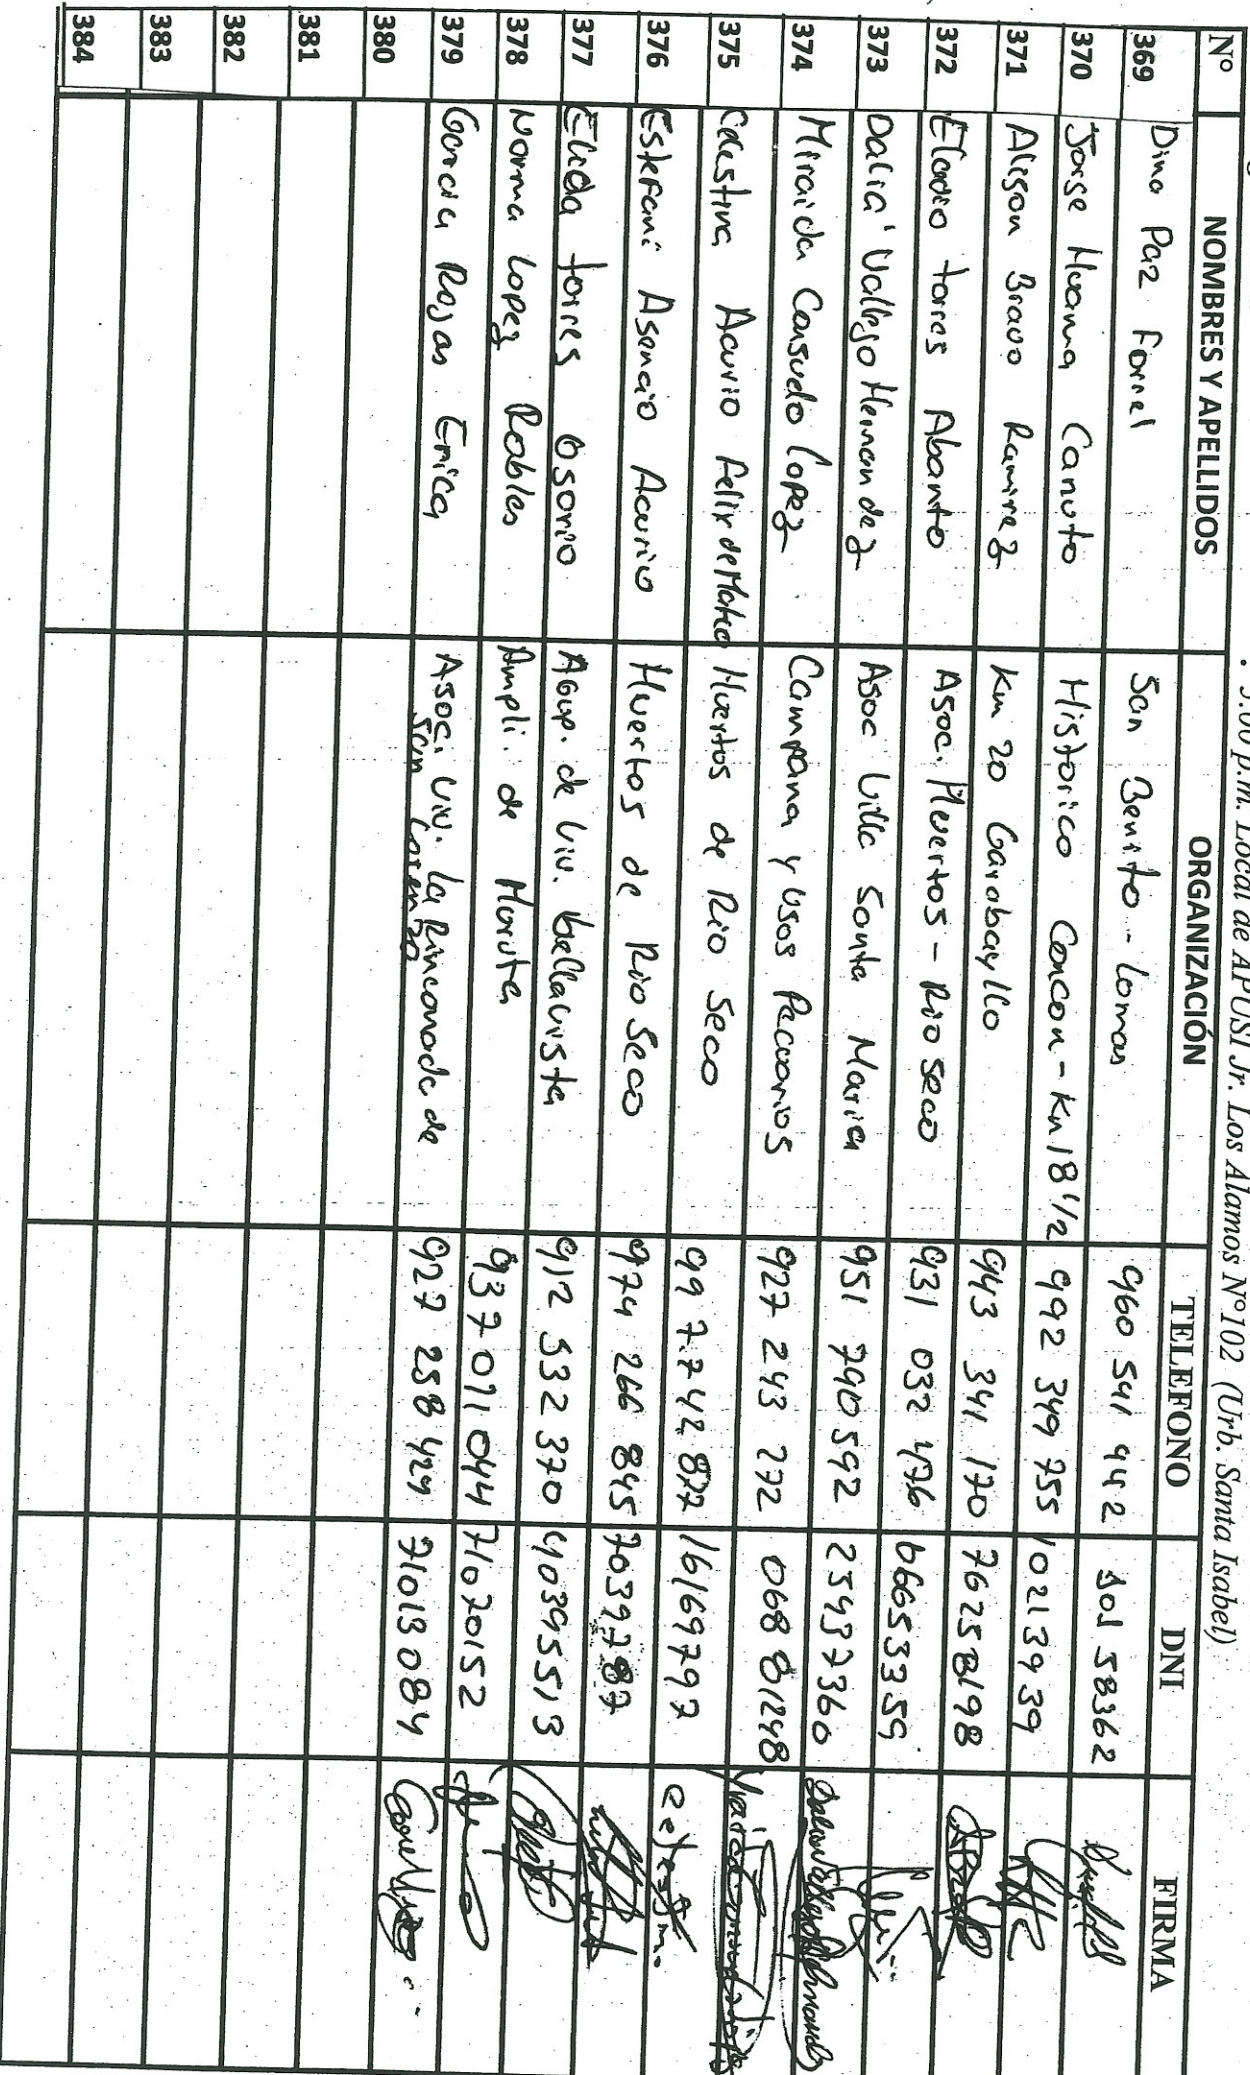 Local de APUSI Jr. Los Alamos N°102 (Urb. Santa Isabel)
N° NOMBRES Y APELLIDOS ORGANIZACIÓN TELEFONO DNI FIRMA
369 Dina Paz Forrel San Benito - Lomas 960 541 442 101 58362
370 Jorge Huama Canuto Historico Concon - Km 18 1/2 992 349 755 10213939
371 Alison Bravo Ramirez Km 20 Carabayllo 943 341 170 76258198
372 Eladio torres Abanto Asoc. Huertos - Rio Seco 931 032 476 66653359
373 Dalia Vallejo Hernandez Asoc Villa Santa Maria 951 740 592 25437360
374 Miraida Consuelo Lopez Campana y Usos Pecuarios 927 243 272 06881248
375 Celestina Acurio Felix de Mateo Huertos de Rio Seco 997742877 16169797
376 Estefani Asencio Acurio Huertos de Rio Seco 974 266 845 70397787
377 Elida torres Osorio Agup. de Viv. bellavista 912 532 370 40395513
378 Norma Lopez Robles Ampli. de 937 071 044 71072015 2
379 Garcia Rojas Erica Asoc. Viv. la Rinconada de 927 258 424 71013084
San Lorenzo
380
381
382
383
384